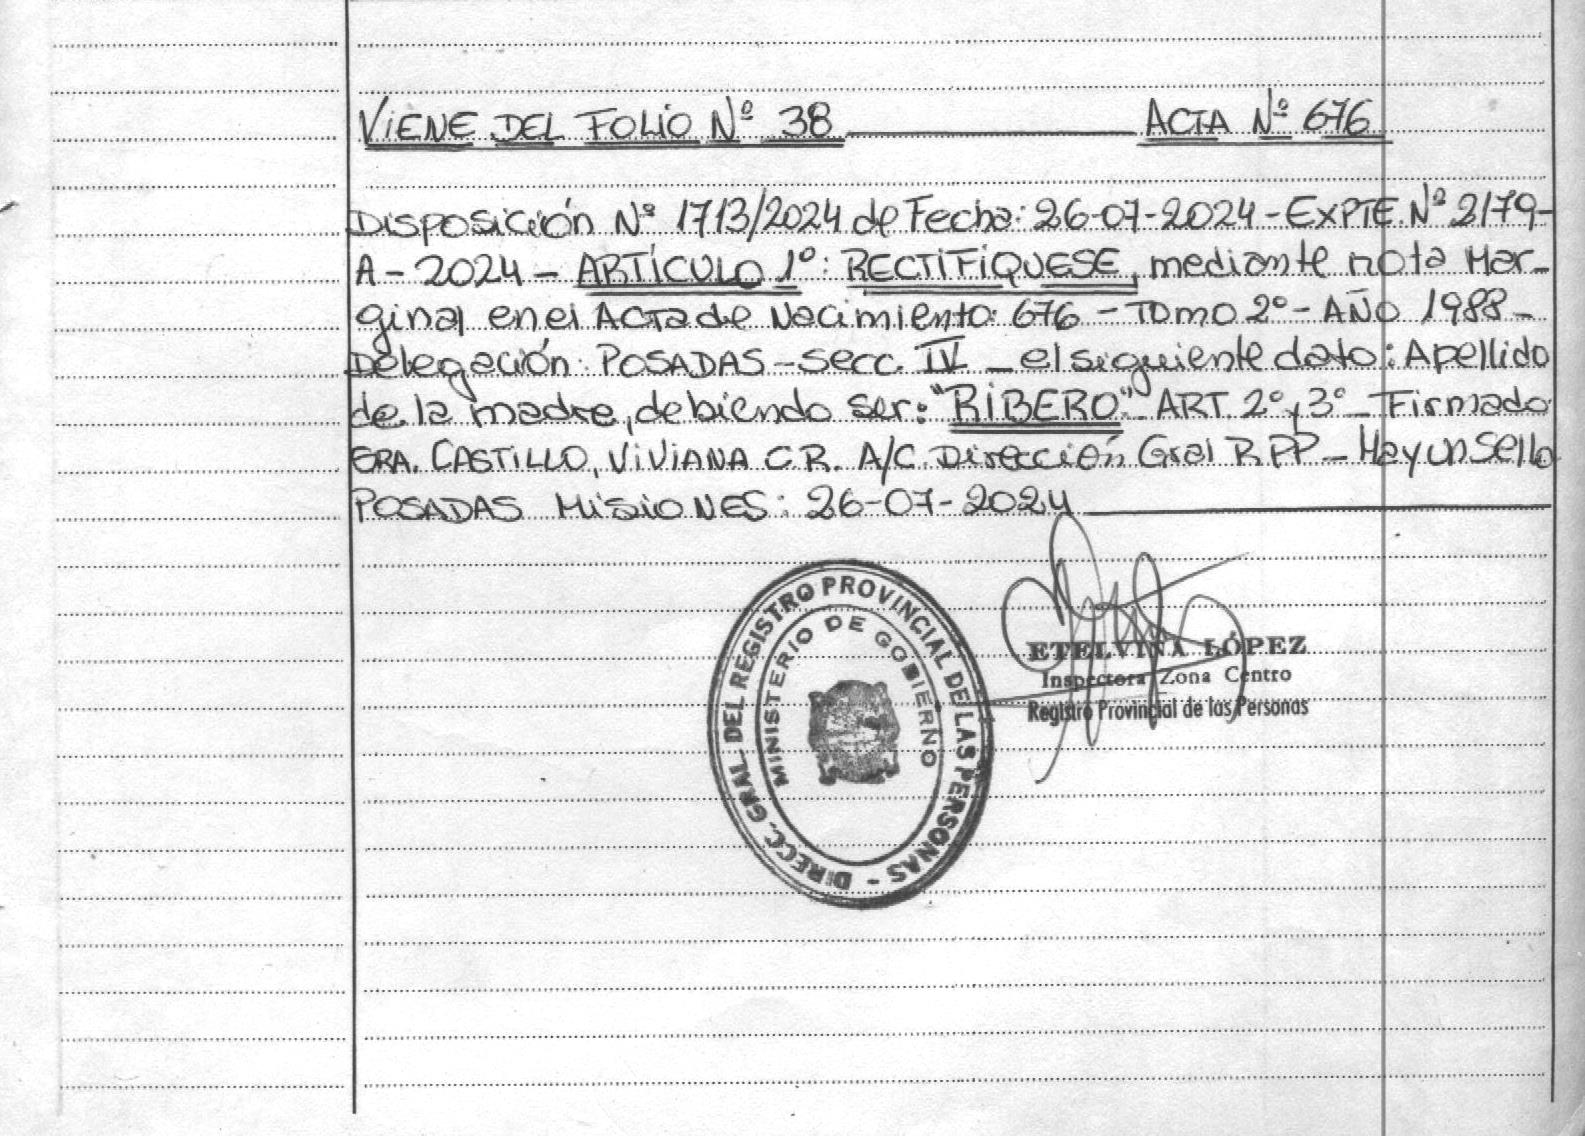 VIENE DEL FOLIO Nº 38 ACTA Nº 676
DISPOSICIÓN Nº 1713/2024 de Fecha: 26-07-2024 - EXPTE Nº 2179-
A - 2024 - ARTÍCULO 1º: RECTIFÍQUESE, mediante nota Mar-
ginal en el ACTA de Nacimiento: 676 - TOMO 2º - AÑO 1988 -
Delegación: POSADAS - secc. IV - el siguiente dato: Apellido
de la madre, debiendo ser: "RIBERO" ART 2º y 3º - Firmado
GRA. CASTILLO, VIVIANA C.R. A/C Dirección Gral R.PP - Hay un Sello
POSADAS MISIONES: 26-07-2024
DIRECC. GRAL. DEL REGISTRO PROVINCIAL DE LAS PERSONAS -
MINISTERIO DE GOBIERNO
ETELVINA LÓPEZ
Inspectora Zona Centro
Registro Provincial de las Personas